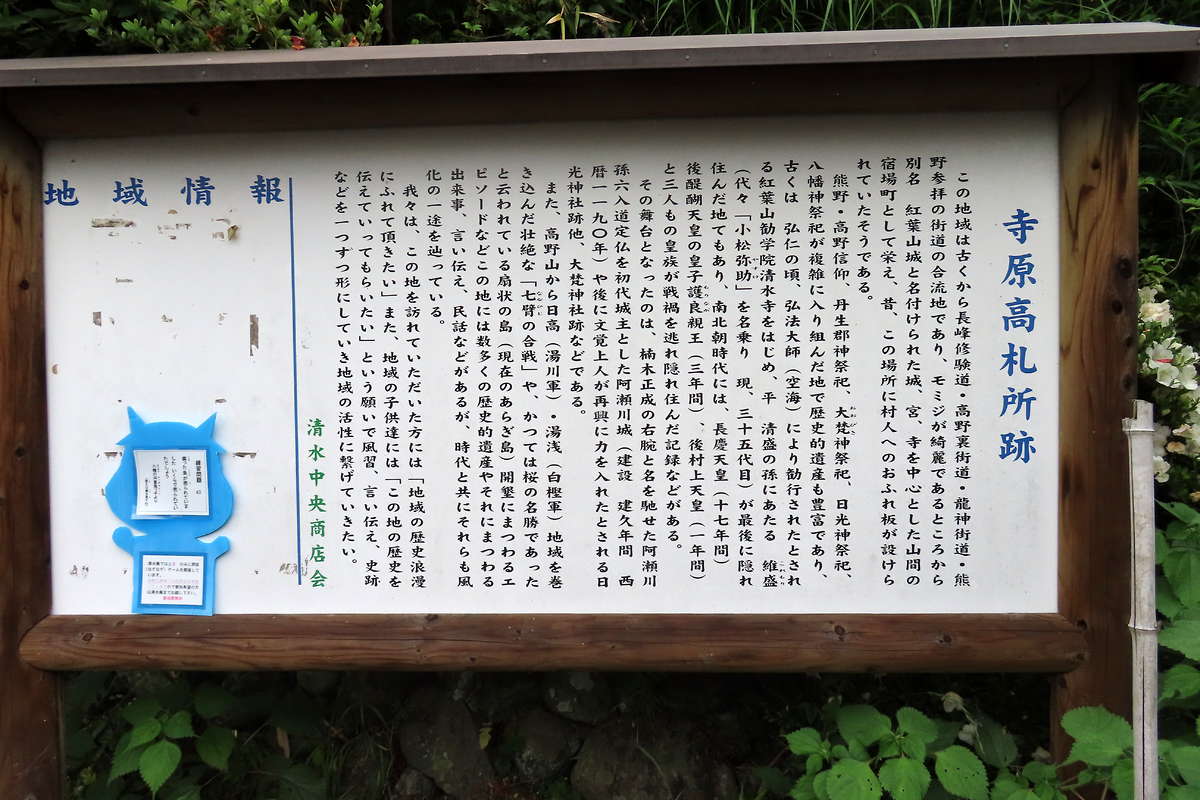 寺原高札所跡
この地域は古くから長峰修験道・高野裏街道・龍神街道・熊
野参拝の街道の合流地であり、モミジが綺麗であるところから
別名 紅葉山城と名付けられた城、宮、寺を中心とした山間の
宿場町として栄え、昔、この場所に村人へのおふれ板が設けら
れていたそうである。
熊野・高野信仰、丹生都神祭祀、大梵神祭祀、日光神祭祀、
八幡神祭祀が複雑に入り組んだ地で歴史的遺産も豊富であり、
古くは 弘仁の頃、弘法大師(空海)により勧行されたとされ
る紅葉山勧学院清水寺をはじめ、平 清盛の孫にあたる 維盛
(代々「小松弥助」を名乗り 現、三十五代目)が最後に隠れ
住んだ地でもあり、南北朝時代には、長慶天皇(十七年間)
後醍醐天皇の皇子護良親王(三年間)、後村上天皇(一年間)
と三人もの皇族が戦禍を逃れ隠れ住んだ記録などがある。
その舞台となったのは、楠木正成の右腕と名を馳せた阿瀬川
孫六入道定仏を初代城主とした阿瀬川城(建設 建久年間 西
暦一一九〇年)や後に文覚上人が再興に力を入れたとされる日
光神社跡他、大梵神社跡などである。
また、高野山から日高(湯川軍)・湯浅(白樫軍)地域を巻
き込んだ壮絶な「七臂の合戦」や、かつては桜の名勝であった
と云われている扇状の島(現在のあらぎ島)開墾にまつわるエ
ピソードなどこの地には数多くの歴史的遺産やそれにまつわる
出来事、言い伝え、民話などがあるが、時代と共にそれらも風
化の一途を辿っている。
我々は、この地を訪れていただいた方には「地域の歴史浪漫
にふれて頂きたい」また、地域の子供達には「この地の歴史を
伝えていってもらいたい」という願いで風習、言い伝え、史跡
などを一つずつ形にしていき地域の活性に繋げていきたい。
清水中央商店会
地域情報
練習問題